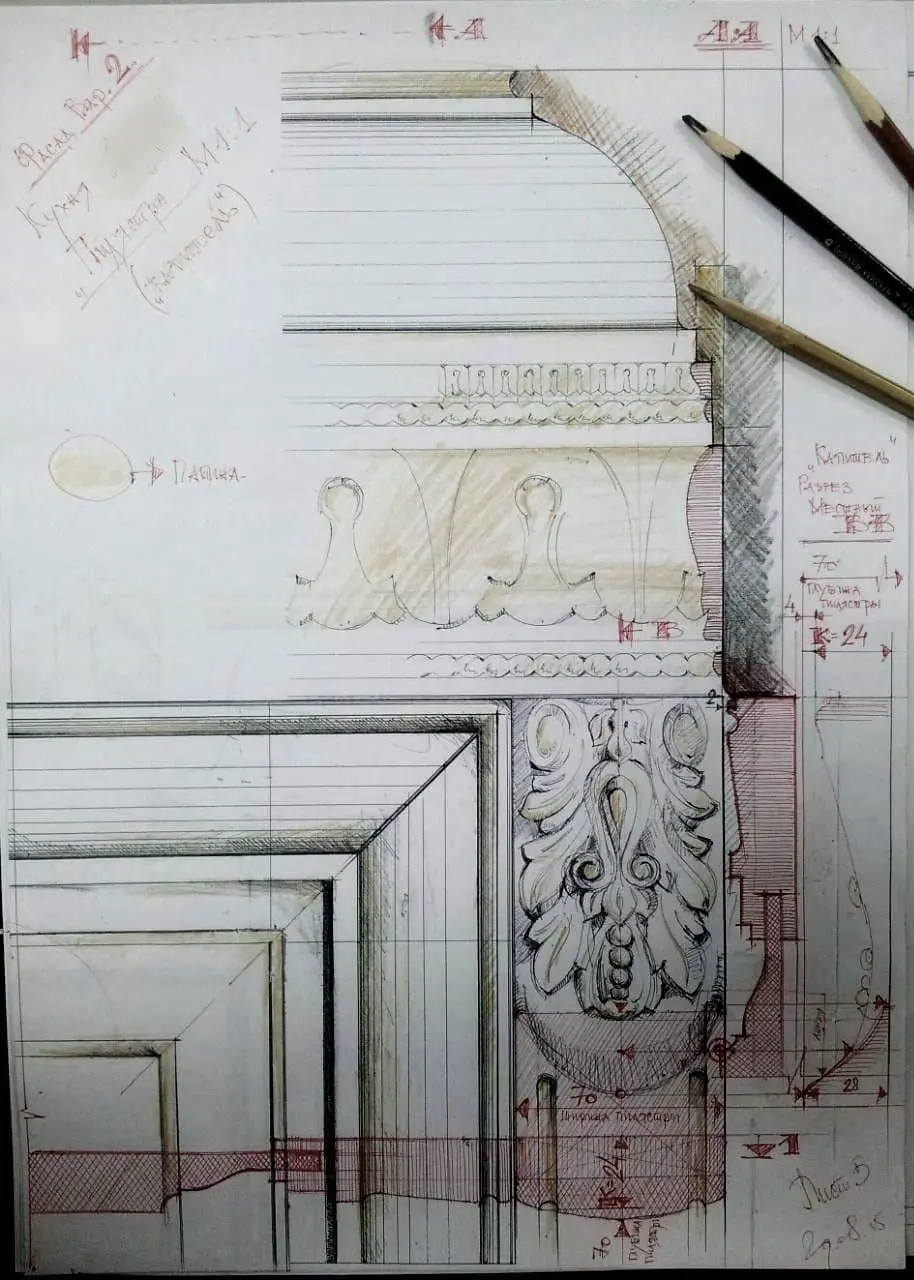 А
А-А
М 1:1
"Фасад Вар. 2.
Кухня
"Пилястра М 1:1
("Капитель")
Патина-
"Капитель"
Разрез
Местный
В-В
70
Глубина
пилястры
4
К=24
В
2
28
70
Ширина пилястры
К=24
70
Глубина
пилястры
1
Лист 5